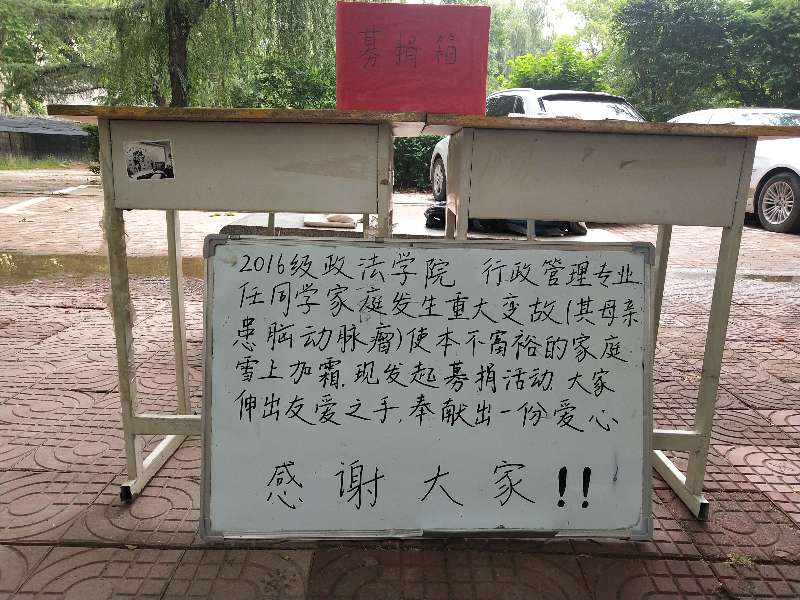 募捐箱
2016级政法学院 行政管理专业
任同学家庭发生重大变故(其母亲
患脑动脉瘤)使本不富裕的家庭
雪上加霜.现发起募捐活动.大家
伸出友爱之手.奉献出一份爱心
感谢大家!!